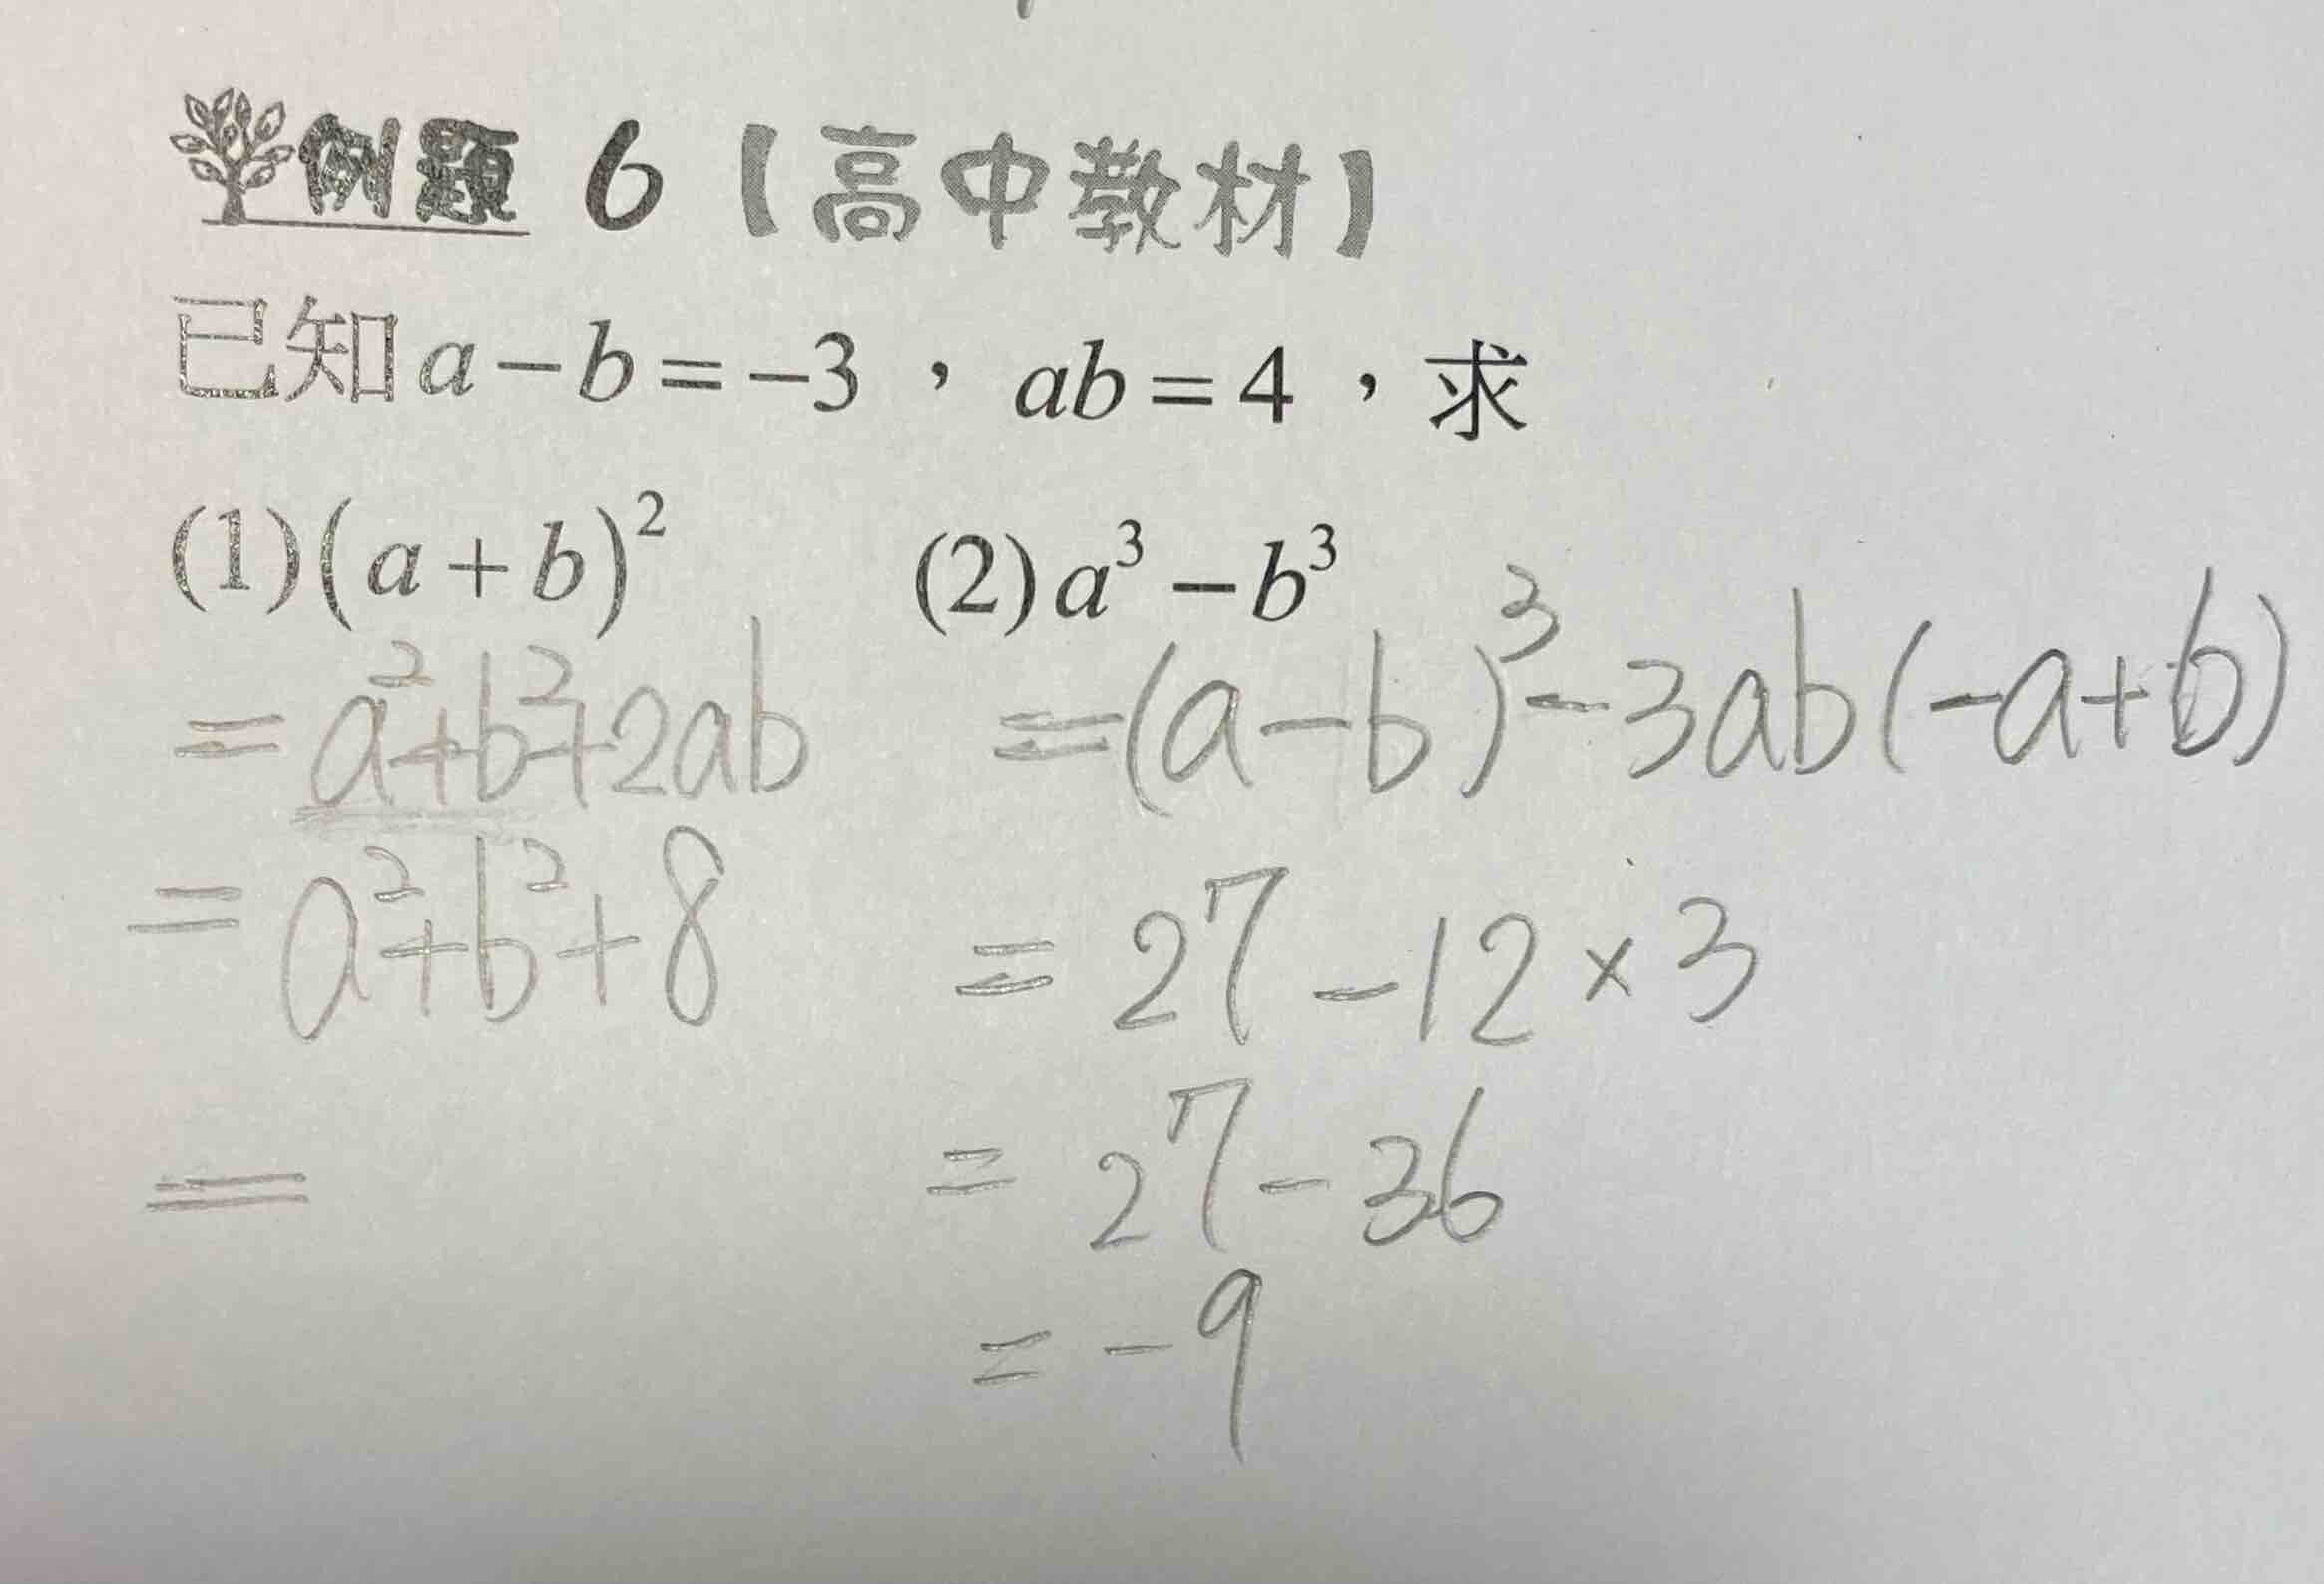 例題 6【高中教材】
已知 a − b = −3，ab = 4，求
(1) (a + b)²
= a² + b² + 2ab
= a² + b² + 8
=
(2) a³ − b³
= (a − b)³ − 3ab(−a + b)
= 27 − 12 × 3
= 27 − 36
= −9